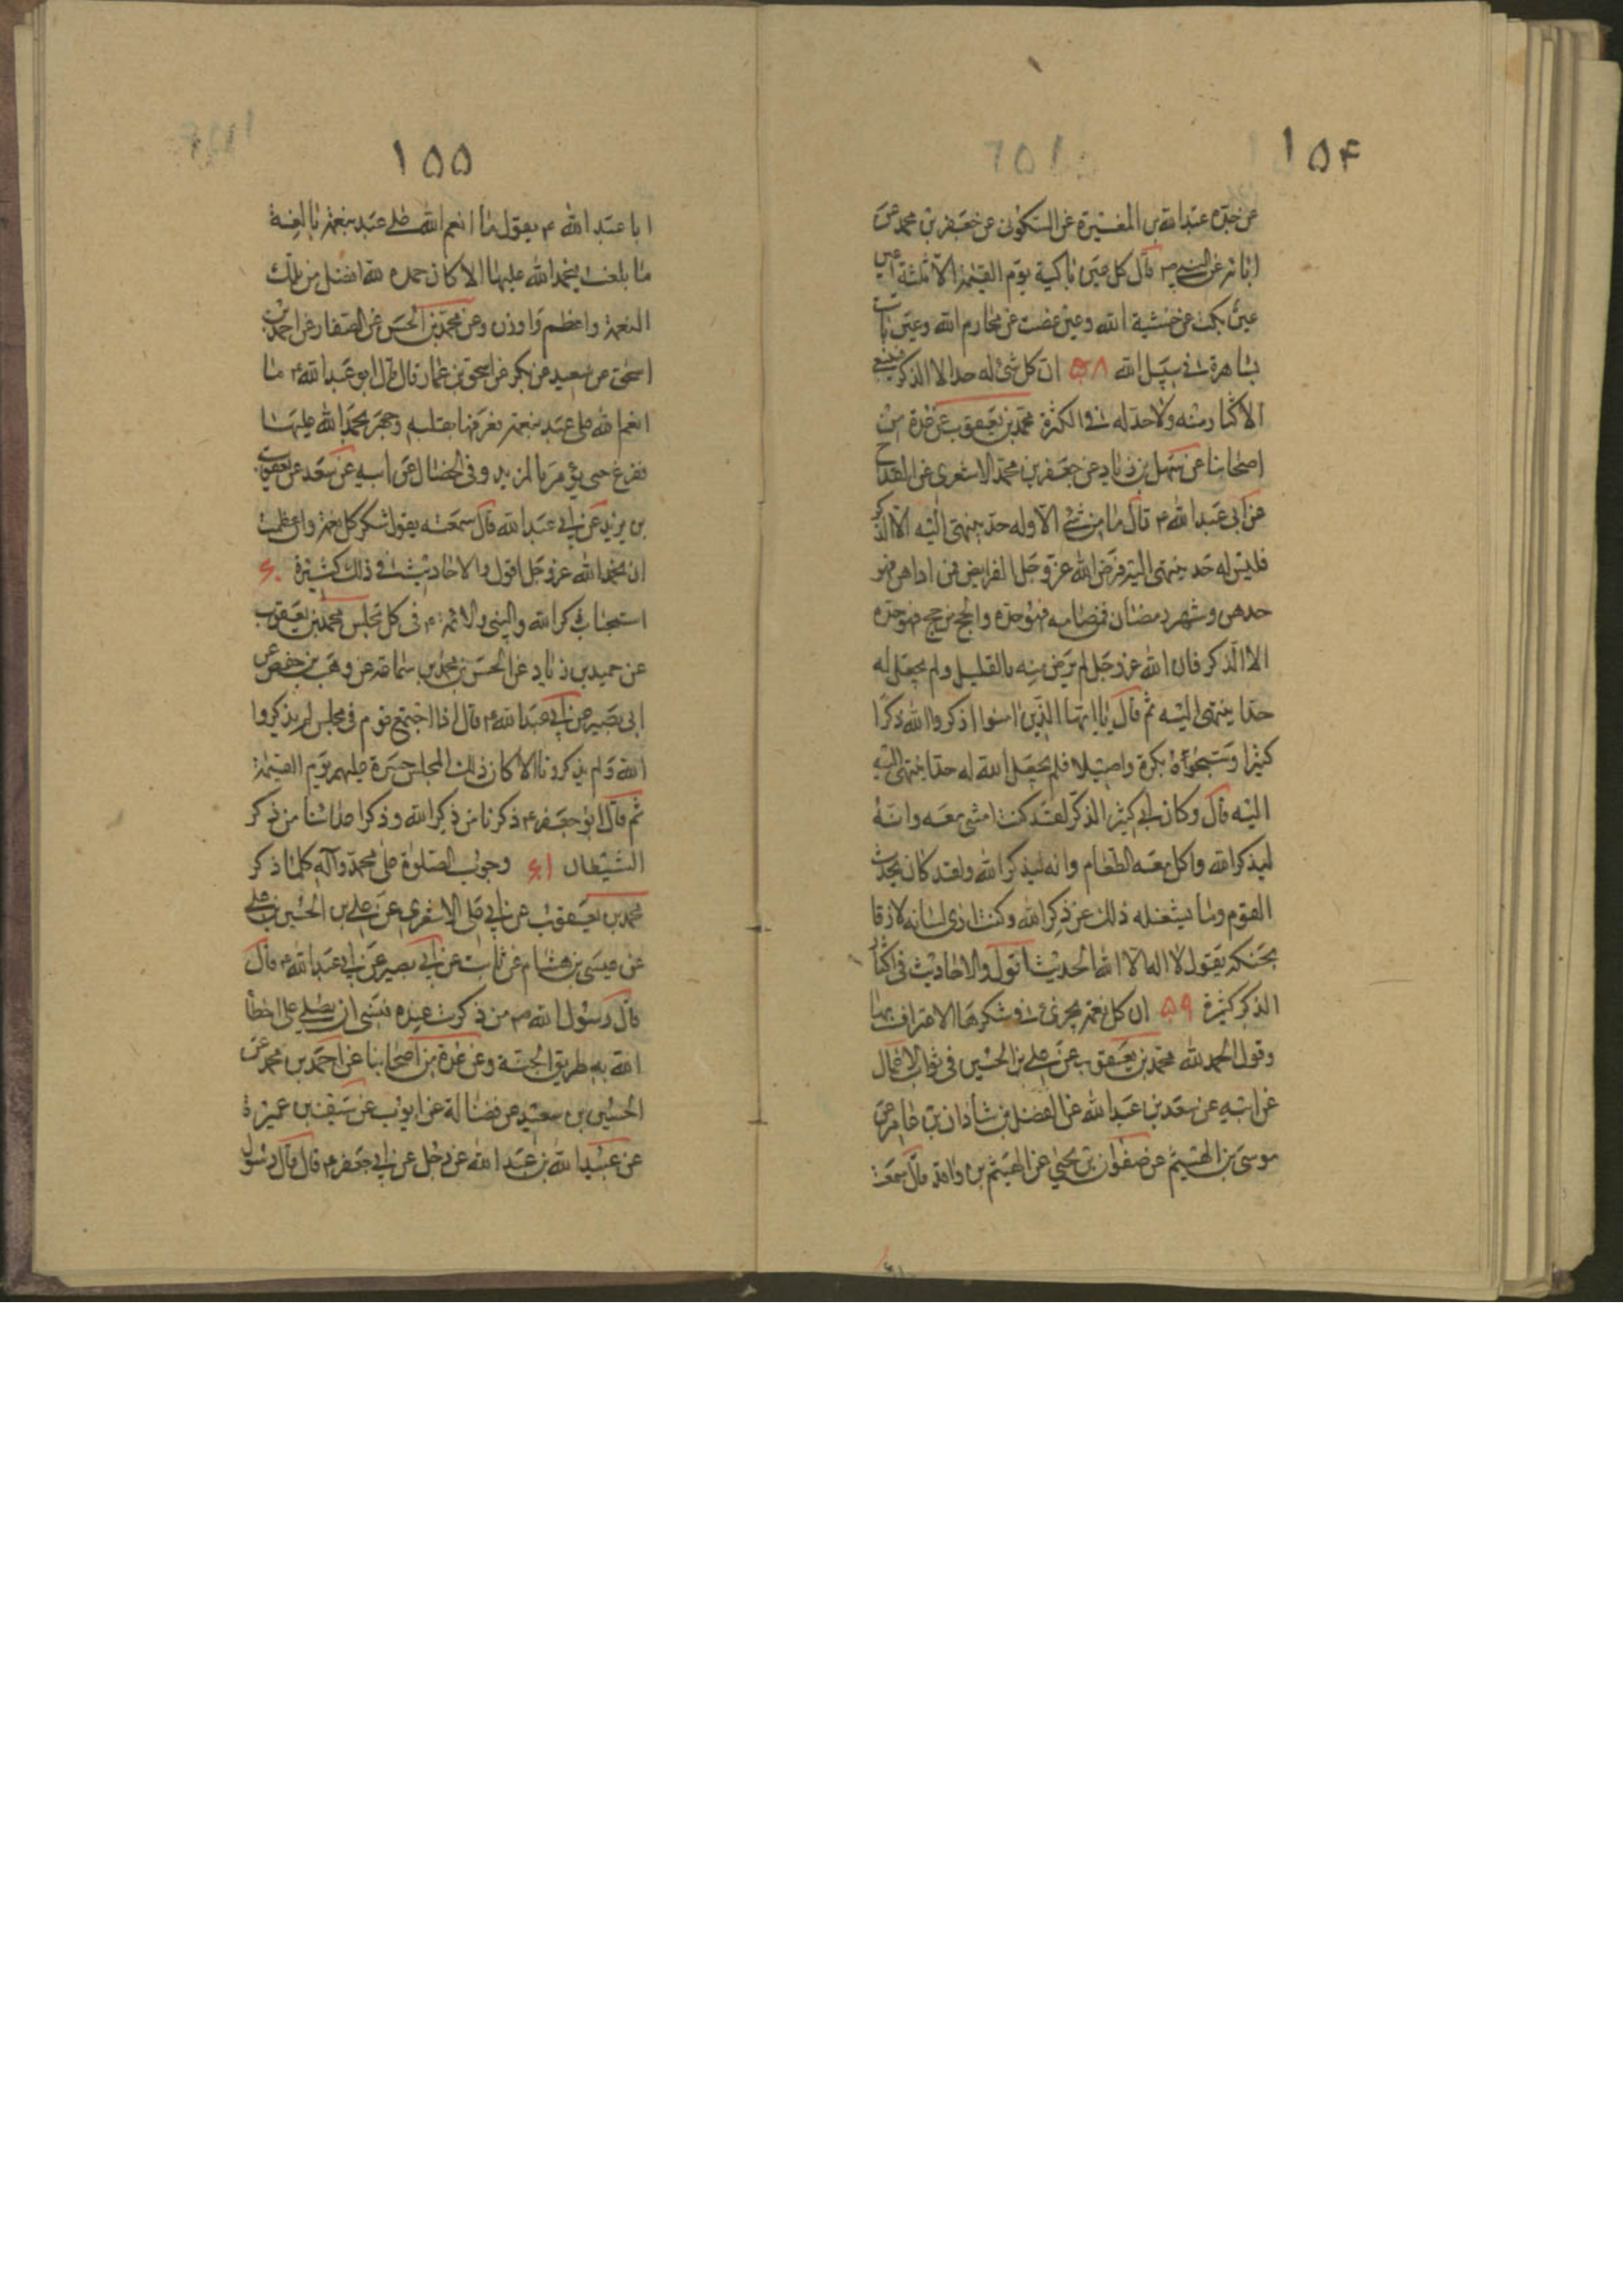 ١٥۴
عن جده عبد الله بن المغيرة عن السكونى عن جعفر بن محمد عن
ابائه عن النبى ص قال كل عين باكية يوم القيمة الا ثلثة اعين
عين بكت من خشية الله وعين غضت عن محارم الله وعين باتت
ساهرة فى سبيل الله ۵۸ ان كل شئ له حد الا الذكر فينبغى
الاكثار منه ولا حد له فى الكثرة محمد بن يعقوب عن عدة من
اصحابنا عن سهل بن زياد عن جعفر بن محمد الاشعرى عن القداح
عن ابى عبد الله ع قال ما من شئ الا وله حد ينتهى اليه الا الذكر
فليس له حد ينتهى اليه فرض الله عز وجل الفرايض فمن اداهن فهو
حدهن وشهر رمضان فمن صامه فهو حده والحج من حج فهو حده
الا الذكر فان الله عز وجل لم يرض منه بالقليل ولم يجعل له
حدا ينتهى اليه ثم قال يا ايها الذين امنوا اذكروا الله ذكرا
كثيرا وسبحوه بكرة واصيلا فلم يجعل الله له حدا ينتهى اليه
اليه قال وكان ابى كثير الذكر لقد كنت امشى معه وانه
ليذكر الله واكل معه الطعام وانه ليذكر الله ولقد كان يحدث
القوم وما يشغله ذلك عن ذكر الله وكنت ارى لسانه لازقا
بحنكه يقول لا اله الا الله الحديث اقول والاحاديث فى اكثار
الذكر كثيرة ۵۹ ان كل نعمة يجزئ فى شكرها الاعتراف بها
وقول الحمد لله محمد بن يعقوب عن على بن الحسين فى ثواب الاعمال
عن ابيه عن سعد بن عبد الله عن الفضل بن شاذان بن عامر عن
موسى بن الهيثم عن صفوان بن يحيى عن الهيثم بن واقد قال سمعت
١۵۵
ابا عبد الله ع يقول ما انعم الله على عبد بنعمة بالغة
ما بلغت فحمد الله عليها الا كان حمده لله افضل من تلك
النعمة واعظم واوزن وعن محمد بن الحسن عن الصفار عن احمد بن
اسحق عن سعيد عن بكر عن اسحق بن عمار قال قال ابو عبد الله ع ما
انعم الله على عبد بنعمة فعرفها بقلبه وجهر بحمد الله عليها
ففرغ حتى يؤمر بالمزيد وفى الخصال عن ابيه عن سعد عن يعقوب
بن يزيد عن ابى عبد الله قال سمعته يقول شكر كل نعمة وان عظمت
ان يحمد الله عز وجل اقول والاحاديث فى ذلك كثيرة ۶۰
استحباب ذكر الله والنبى والائمة ع فى كل مجلس محمد بن يعقوب
عن حميد بن زياد عن الحسن بن محمد بن سماعة عن وهب بن حفص عن
ابى بصير عن ابى عبد الله ع قال اذا اجتمع قوم فى مجلس لم يذكروا
الله ولم يذكرونا الا كان ذلك المجلس حسرة عليهم يوم القيمة
ثم قال ابو جعفر ع ذكرنا من ذكر الله وذكر اعدائنا من ذكر
الشيطان ۶۱ وجوب الصلوة على محمد وآله كلما ذكر
محمد بن يعقوب عن ابى على الاشعرى عن على بن الحسين بن على
عن عيسى بن هشام عن ثابت عن ابى بصير عن ابى عبد الله ع قال
قال رسول الله ص من ذكرت عنده فنسى ان يصلى على اخطأ
الله به طريق الجنة وعن عدة من اصحابنا عن احمد بن محمد عن
الحسين بن سعيد عن فضالة عن ايوب عن سيف بن عميرة
عن عبيد الله بن عبد الله عن رجل عن ابى جعفر ع قال قال رسول